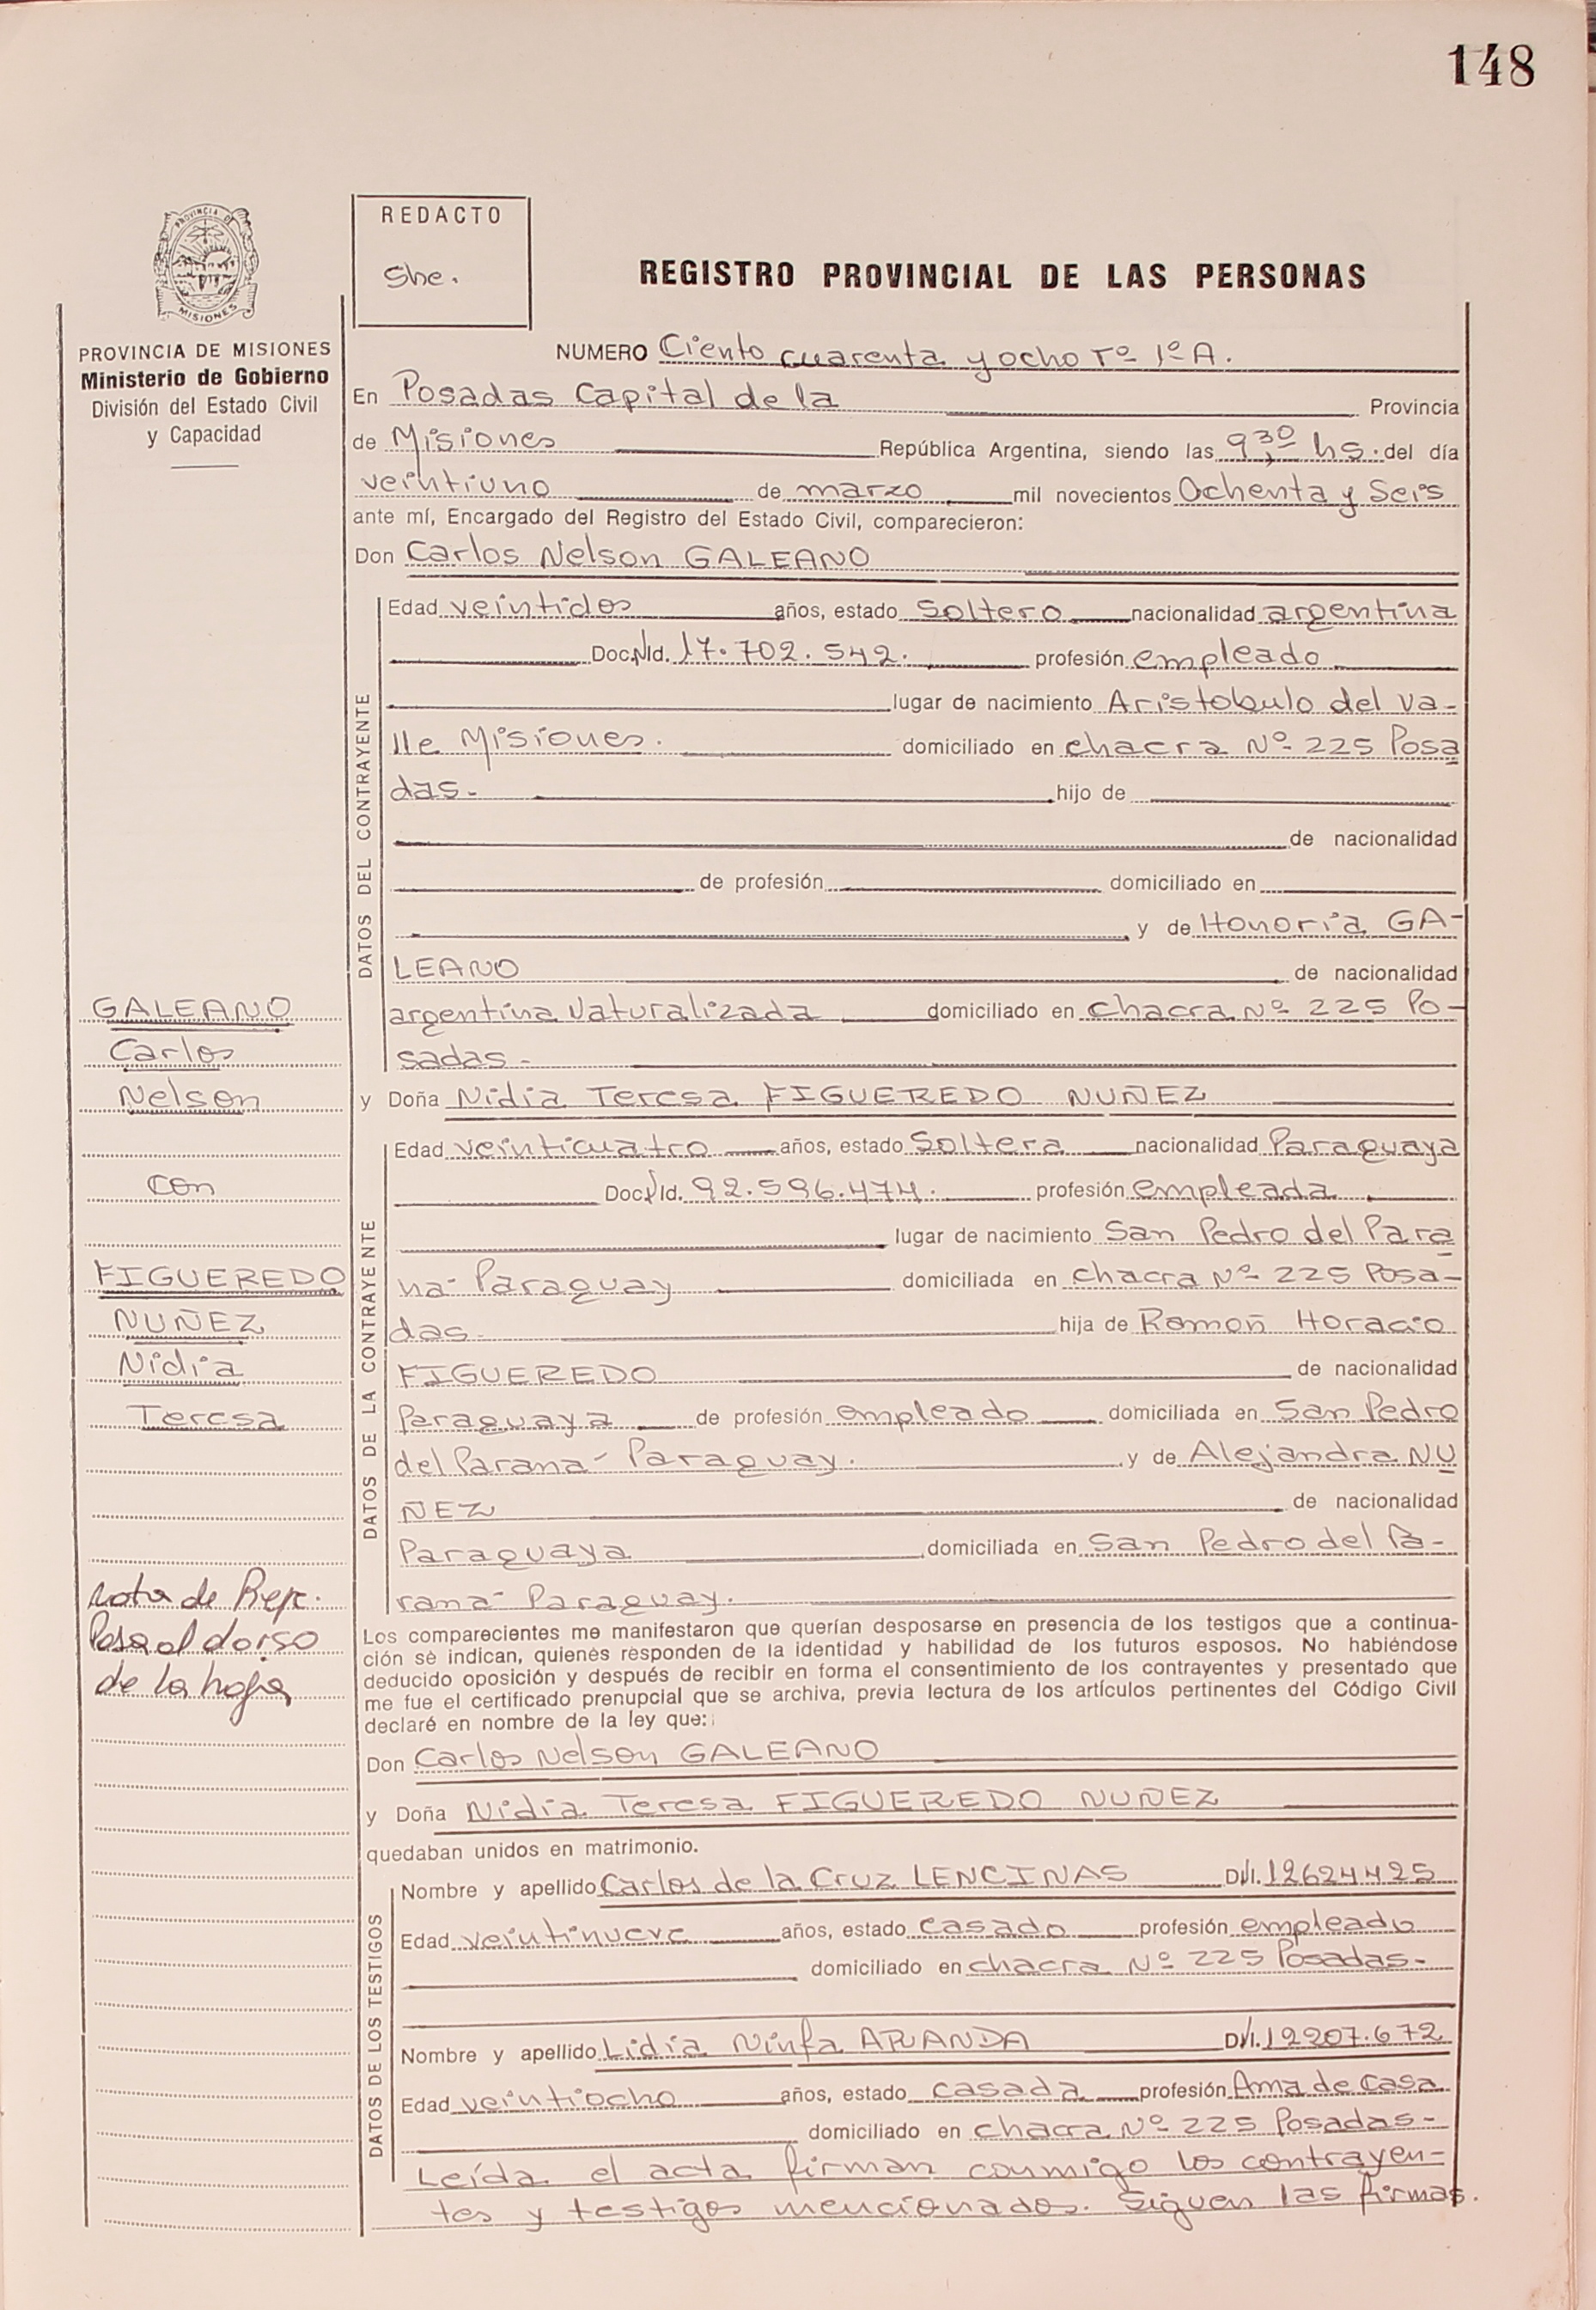 148
PROVINCIA DE
MISIONES
PROVINCIA DE MISIONES
Ministerio de Gobierno
División del Estado Civil
y Capacidad
REDACTO
She.
REGISTRO PROVINCIAL DE LAS PERSONAS
NUMERO Ciento cuarenta y ocho Tº 1º A.
En Posadas Capital de la Provincia
de Misiones República Argentina, siendo las 9,30 hs. del día
veintiuno de marzo mil novecientos Ochenta y Seis
ante mí, Encargado del Registro del Estado Civil, comparecieron:
Don Carlos Nelson GALEANO
DATOS DEL CONTRAYENTE
Edad veintidos años, estado Soltero nacionalidad argentina
Doc. Nld. 17.702.542. profesión empleado
lugar de nacimiento Aristobulo del Va-
lle Misiones. domiciliado en chacra Nº 225 Posa
das- hijo de
de nacionalidad
de profesión domiciliado en
y de Honoria GA-
LEANO de nacionalidad
argentina Naturalizada domiciliado en chacra Nº 225 Po-
sadas-
y Doña Nidia Teresa FIGUEREDO NUÑEZ
DATOS DE LA CONTRAYENTE
Edad veinticuatro años, estado Soltera nacionalidad Paraguaya
Doc. Id. 92.596.474. profesión empleada
lugar de nacimiento San Pedro del Para
na- Paraguay domiciliada en chacra Nº 225 Posa-
das- hija de Ramoñ Horacio
FIGUEREDO de nacionalidad
Paraguaya de profesión empleado domiciliada en San Pedro
del Parana- Paraguay. y de Alejandra NU
ÑEZ de nacionalidad
Paraguaya domiciliada en San Pedro del Pa-
rana- Paraguay.
GALEANO
Carlos
Nelson
con
FIGUEREDO
NUÑEZ
Nidia
Teresa
Nota de Ref.
Pasa al dorso
de la hoja
Los comparecientes me manifestaron que querían desposarse en presencia de los testigos que a continua-
ción se indican, quienes responden de la identidad y habilidad de los futuros esposos. No habiéndose
deducido oposición y después de recibir en forma el consentimiento de los contrayentes y presentado que
me fue el certificado prenupcial que se archiva, previa lectura de los artículos pertinentes del Código Civil
declaré en nombre de la ley que:
Don Carlos Nelson GALEANO
y Doña Nidia Teresa FIGUEREDO NUÑEZ
quedaban unidos en matrimonio.
DATOS DE LOS TESTIGOS
Nombre y apellido Carlos de la Cruz LENCINAS D.I. 12624425
Edad veintinueve años, estado casado profesión empleado
domiciliado en chacra Nº 225 Posadas-
Nombre y apellido Lidia Ninfa ARANDA D.I. 12207.672
Edad veintiocho años, estado casada profesión Ama de casa
domiciliado en chacra Nº 225 Posadas-
Leída el acta firman conmigo los contrayen-
tes y testigos mencionados. Siguen las firmas.